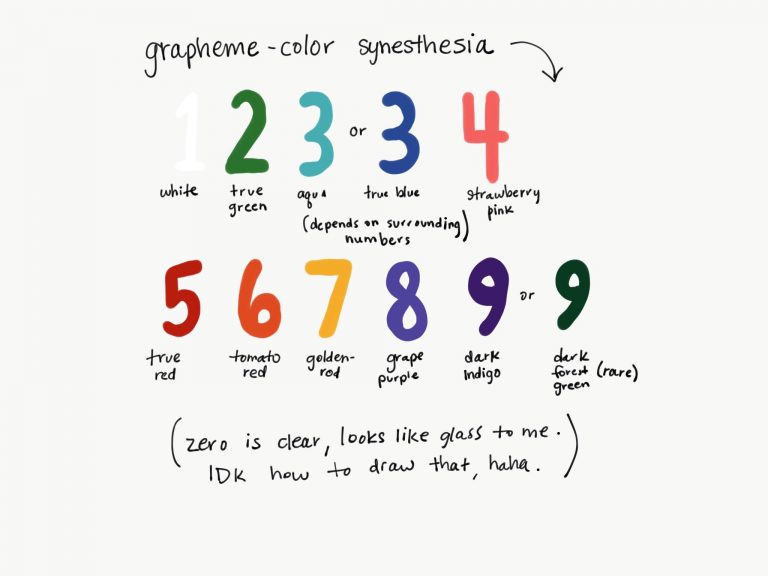 grapheme-color synesthesia
1 2 3 or 3 4
white true green aqua true blue strawberry pink
(depends on surrounding numbers)
5 6 7 8 9 or 9
true red tomato red golden-rod grape purple dark Indigo dark forest green (rare)
(zero is clear, looks like glass to me.
IDK how to draw that, haha.)